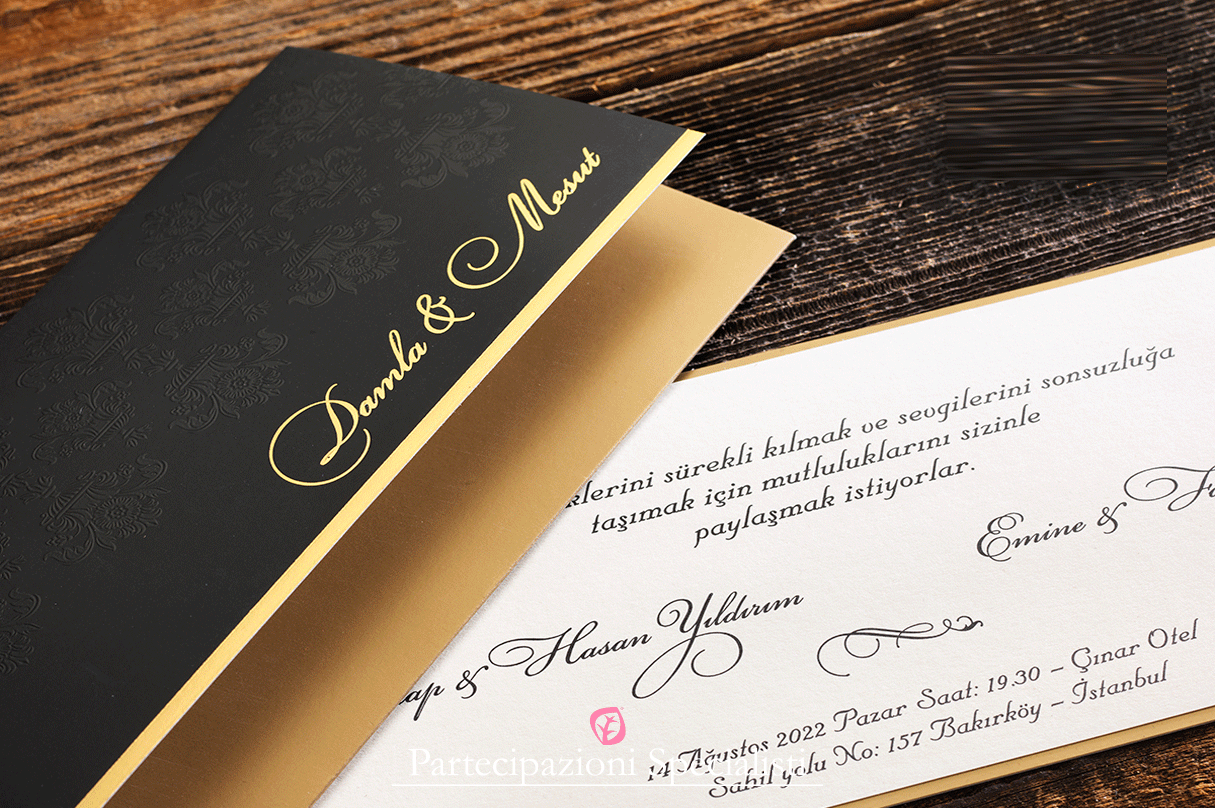 Damla & Mesut
sürekli kılmak ve sevgilerini sonsuzluğa
taşımak için mutluluklarını sizinle
paylaşmak istiyorlar.
Emine &
& Hasan Yıldırım
14 Ağustos 2022 Pazar Saat: 19.30 – Çınar Otel
Sahil yolu No: 157 Bakırköy – İstanbul
Partecipazioni Specialisti